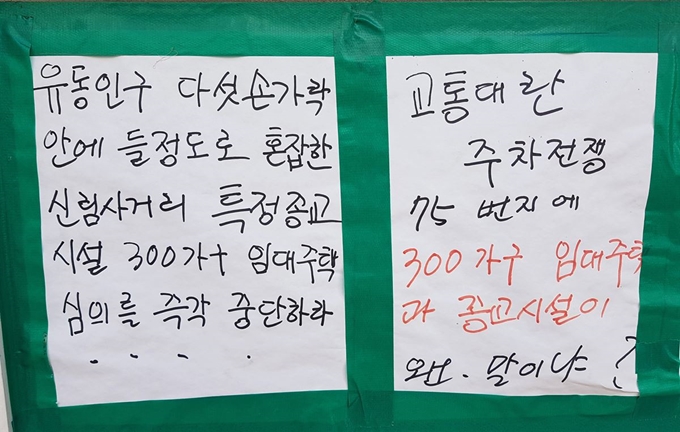 유동인구 다섯손가락
안에 들정도로 혼잡한
신림사거리 특정종교
시설 300가十 임대주택
심의를 즉각 중단하라
. . . .
교통대란
주차전쟁
75 번지에
300가구 임대주택
과 종교시설이
왠. 말이냐?